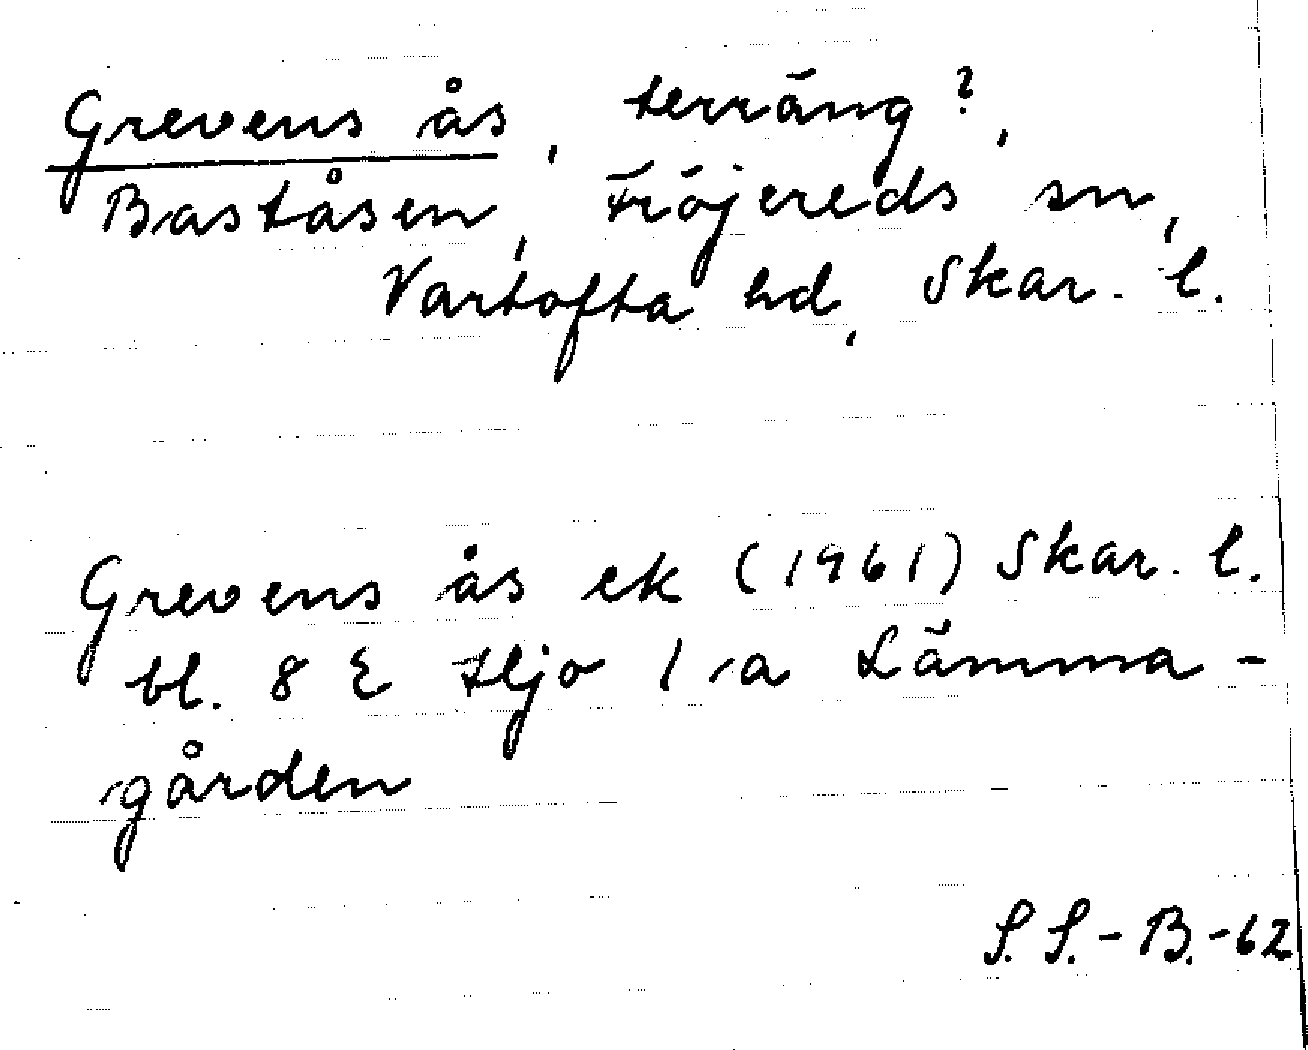 Grevens ås, terräng?,
Baståsen, Fröjereds sn,
Vartofta hd, Skar. l.
Grevens ås ek (1961) Skar. l.
bl. 8 E Hjo 1 a Lämma-
gården
S. S.-B.-62